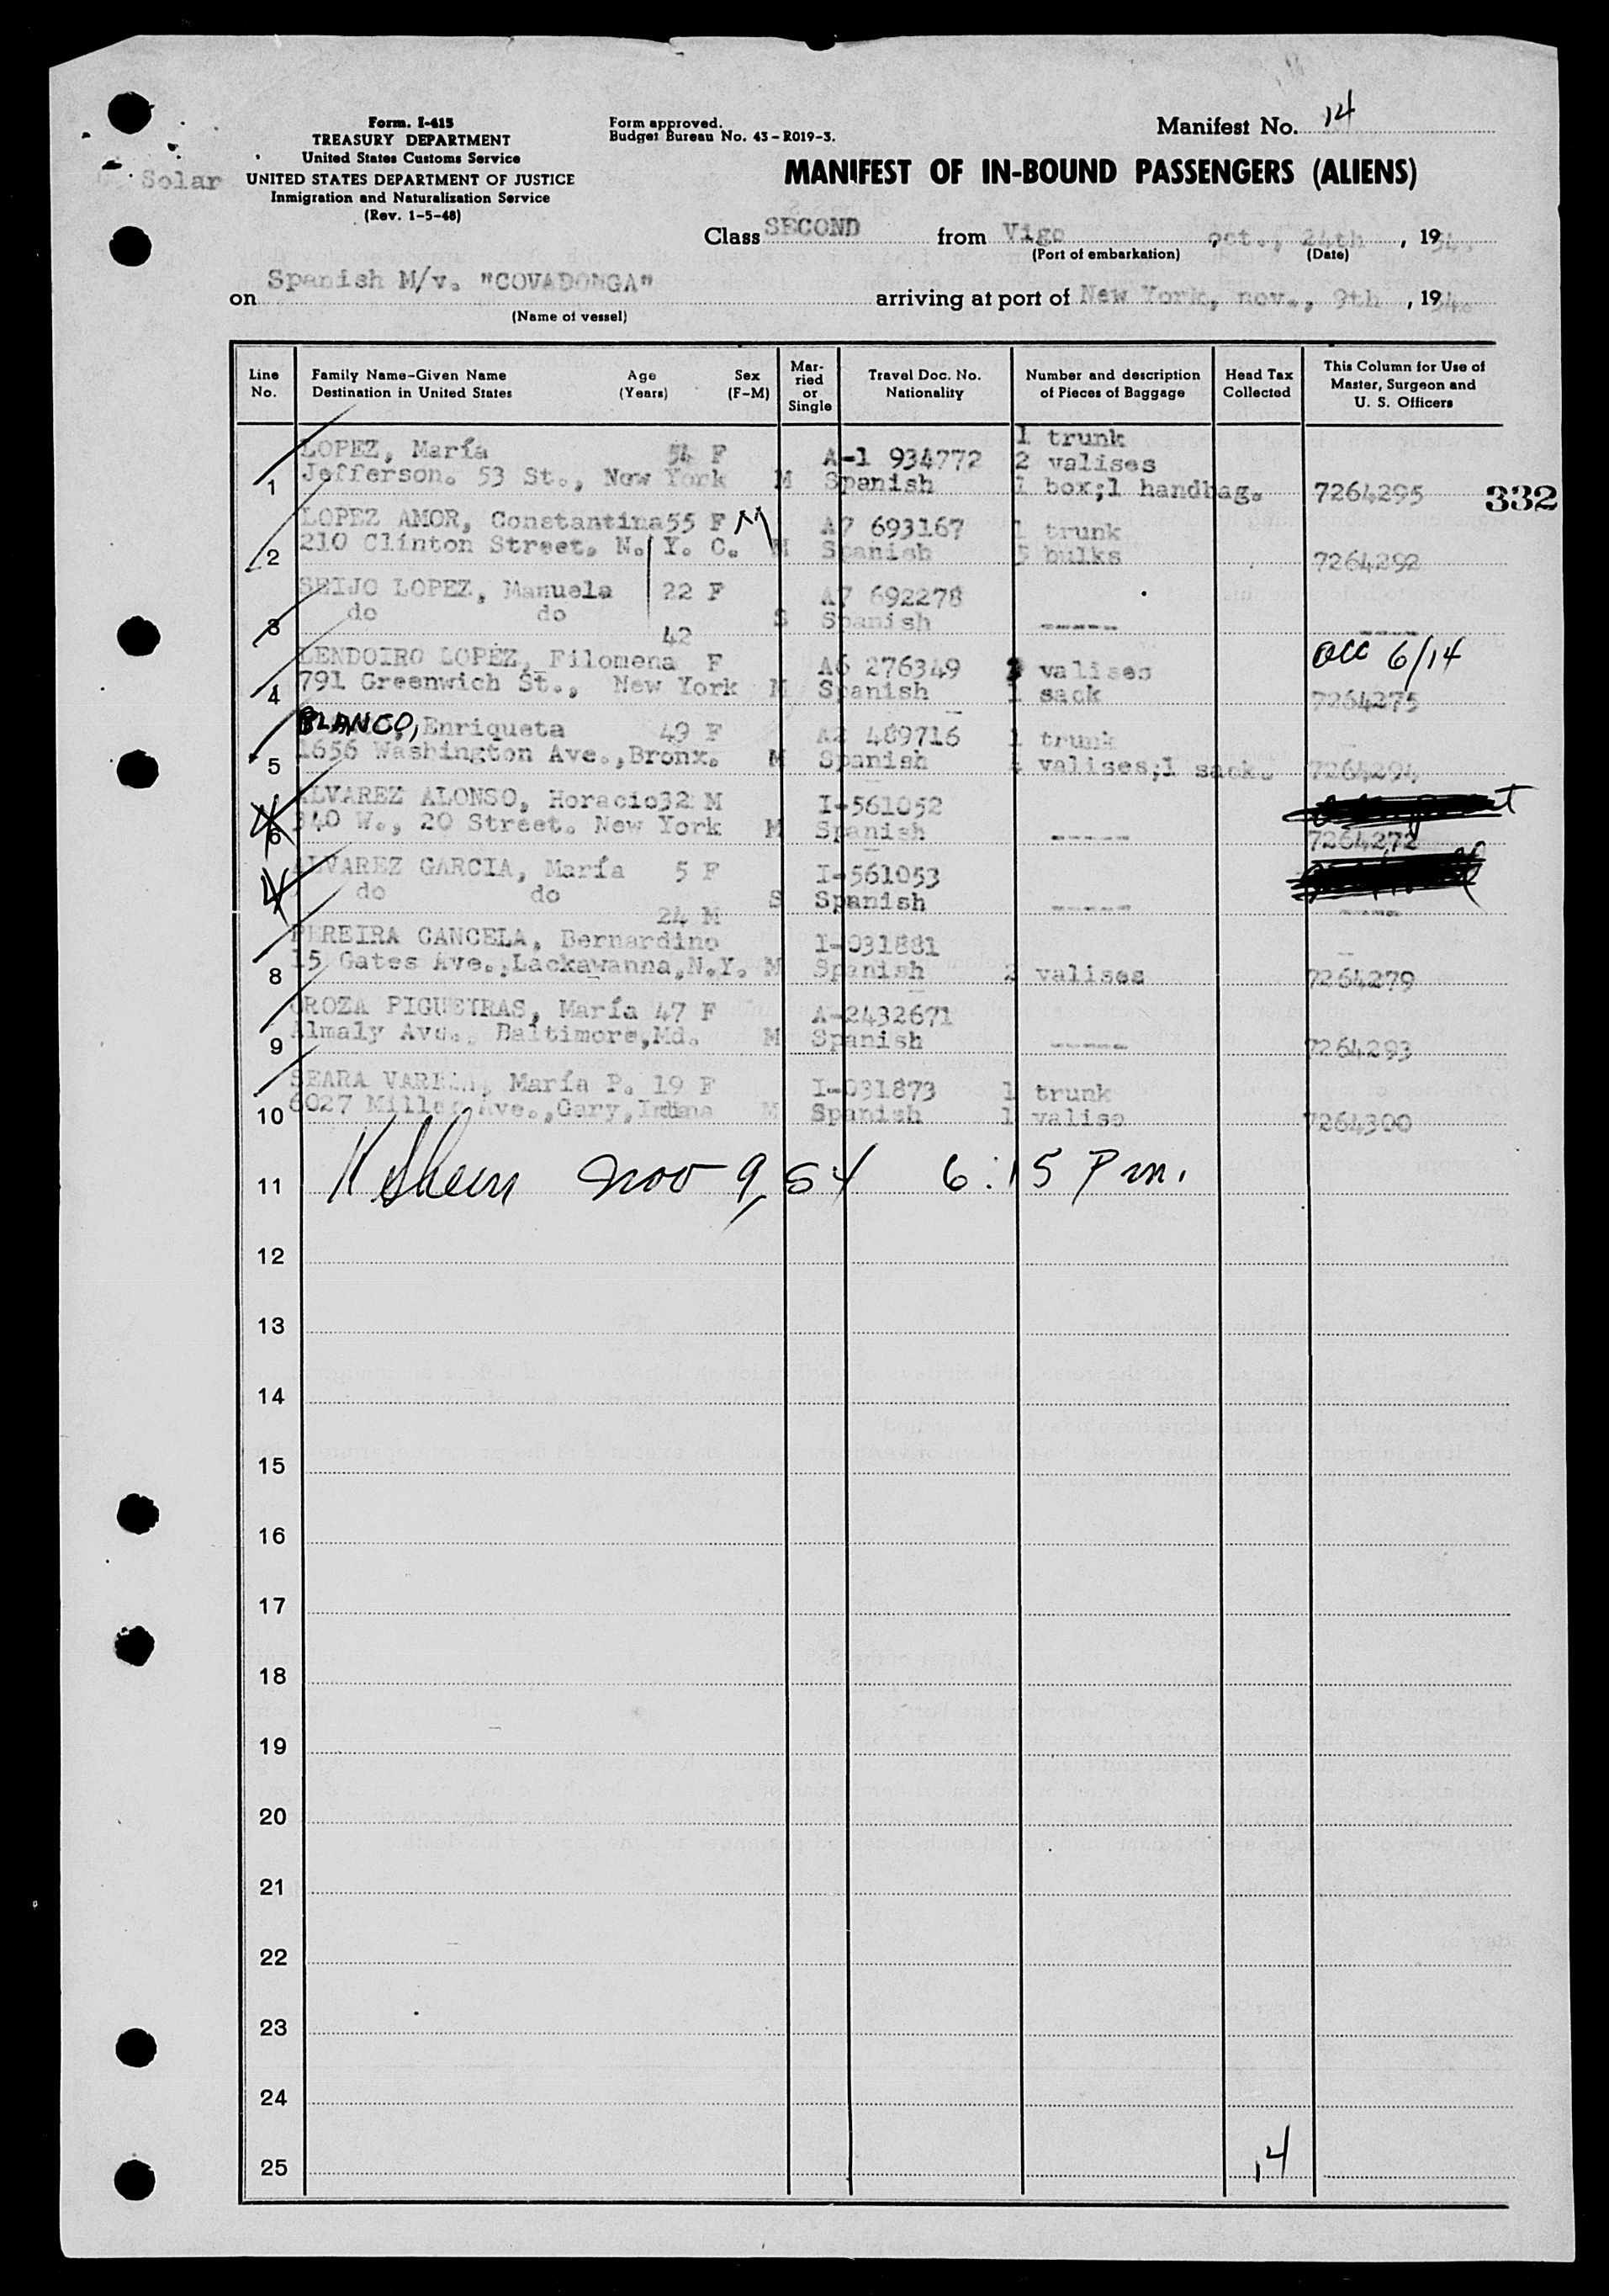 Form. I-415
TREASURY DEPARTMENT
United States Customs Service
UNITED STATES DEPARTMENT OF JUSTICE
Inmigration and Naturalization Service
(Rev. 1-5-48)
Solar
Form approved.
Budget Bureau No. 43-R019-3.
Manifest No. 14
MANIFEST OF IN-BOUND PASSENGERS (ALIENS)
Class SECOND from Vigo, oct., 24th, 1954.
(Port of embarkation) (Date)
on Spanish M/v. "COVADONGA" arriving at port of New York, nov., 9th, 1954.
(Name of vessel)
Line No. Family Name-Given Name Destination in United States Age (Years) Sex (F-M) Married or Single Travel Doc. No. Nationality Number and description of Pieces of Baggage Head Tax Collected This Column for Use of Master, Surgeon and U. S. Officers
1 trunk
LOPEZ, María 54 F A-1 934772 2 valises
1 Jefferson. 53 St., New York M Spanish 1 box;1 handbag. 7264295 332
LOPEZ AMOR, Constantina 55 F M A7 693167 1 trunk
2 210 Clinton Street. N. Y. C. M Spanish 5 bulks 7264292
SEIJO LOPEZ, Manuela 22 F A7 692278
3 do do S Spanish ----- ----
42
LENDOIRO LOPEZ, Filomena F A6 276349 valises acc 6/14
4 791 Greenwich St., New York M Spanish 1 sack 7264275
BLANCO, Enriqueta 49 F A2 489716 1 trunk
5 1656 Washington Ave.,Bronx. M Spanish 4 valises;1 sack. 7264294
ALVAREZ ALONSO, Horacio 32 M I-561052
6 340 W., 20 Street. New York M Spanish ----- 7264272
ALVAREZ GARCIA, María 5 F I-561053
do do S Spanish ----- ----
24 M
PEREIRA CANCELA, Bernardino I-031881
8 15 Gates Ave.,Lackawanna,N.Y. M Spanish 2 valises 7264279
OROZA PIGUEIRAS, María 47 F A-2432671
9 Almaly Ave., Baltimore,Md. M Spanish ----- 7264293
SEARA VARELA, María P. 19 F I-031873 1 trunk
10 6027 Miller Ave.,Gary,Indiana M Spanish 1 valise 7264300
11 Nov 9, 54 6:15 Pm.
12
13
14
15
16
17
18
19
20
21
22
23
24
25 14